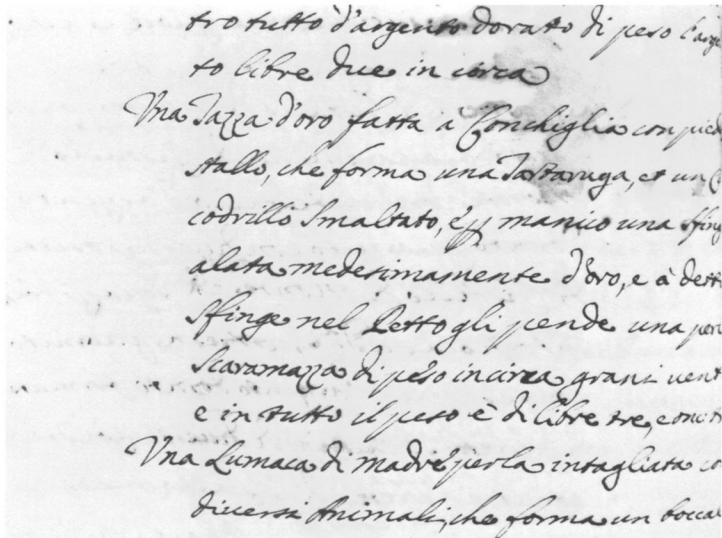 tro tutto d'argento dorato di peso l'arge
to libre due in circa
Vna Tazza d'oro fatta à Conchiglia con pied
stallo, che forma una Tartaruga, et un C
codrillo Smaltato, è p manico una sfing
alata medesimamente d'oro, e à dett
sfinge nel Petto gli pende una per
scaramazza di peso in circa grani vent
e in tutto il peso è di libre tre, e
Vna Lumaca di madre perla intagliata co
diuersi Animali, che forma un bocca